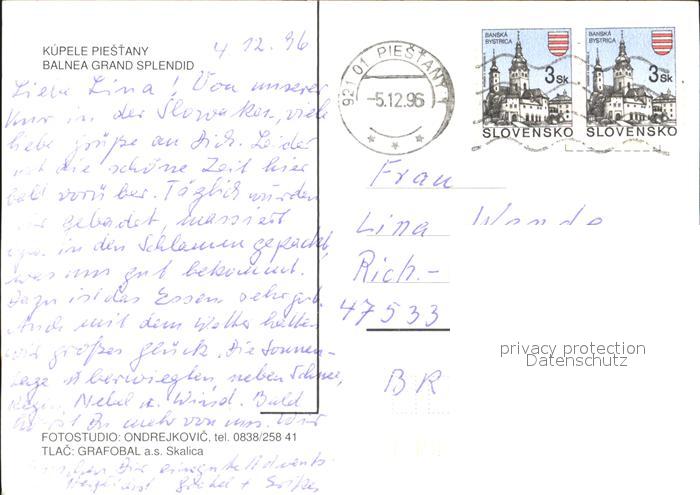 KÚPELE PIEŠŤANY
BALNEA GRAND SPLENDID
4.12.96
Liebe Lina! Von unserer
Kur in der Slowakei, viele
liebe Grüße an Dich. Leider
ist die schöne Zeit hier
bald vorüber. Täglich wurden
wir gebadet, massiert
in den Schlamm gepackt,
was uns gut bekommt.
Dazu ist das Essen sehr gut.
Auch mit dem Wetter hatten
wir großes Glück. Die Sonnen-
tage überwiegten, neben Schnee,
Regen, Nebel u. Wind. Bald
hörst Du mehr von uns. Wir
wünschen Dir eine gute Advents-
FOTOSTUDIO: ONDREJKOVIČ, tel. 0838/258 41
TLAČ: GRAFOBAL a.s. Skalica
921 01 PIEŠŤANY 1
-5.12.96
BANSKÁ
BYSTRICA
3 Sk
SLOVENSKO
BANSKÁ
BYSTRICA
3 Sk
SLOVENSKO
Frau
Lina
Rich.-
47533
BR
privacy protection
Datenschutz